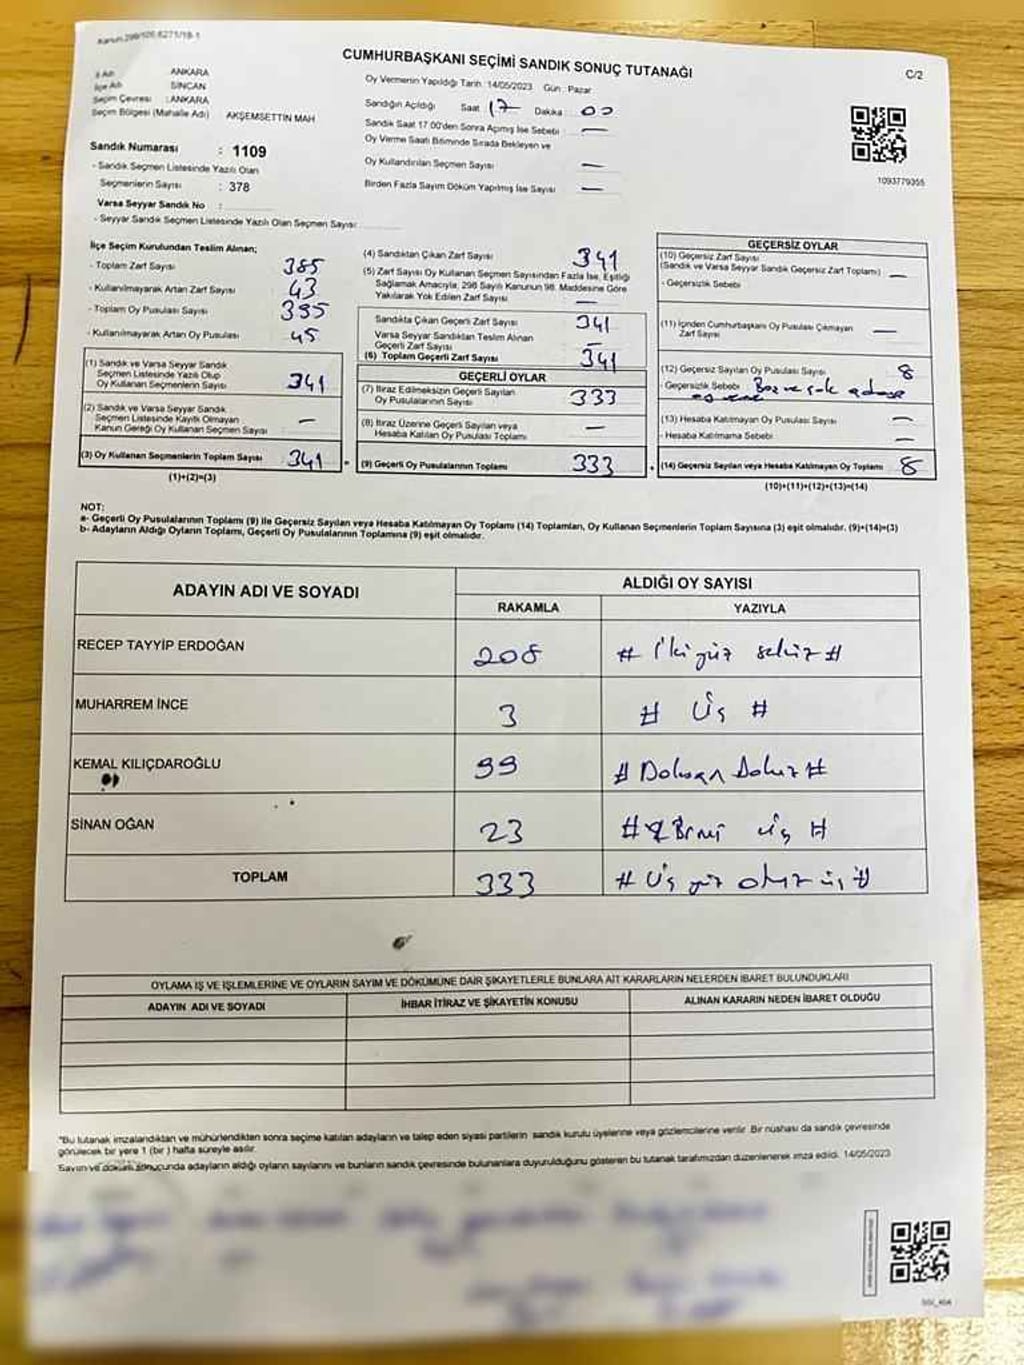 Kanun 298/106,6271/18-1
CUMHURBAŞKANI SEÇİMİ SANDIK SONUÇ TUTANAĞI
C/2
İl Adı ANKARA
İlçe Adı SİNCAN
Seçim Çevresi : ANKARA
Seçim Bölgesi (Mahalle Adı) AKŞEMSETTİN MAH
Sandık Numarası : 1109
- Sandık Seçmen Listesinde Yazılı Olan
Seçmenlerin Sayısı : 378
Varsa Seyyar Sandık No :
- Seyyar Sandık Seçmen Listesinde Yazılı Olan Seçmen Sayısı:
Oy Vermenin Yapıldığı Tarih : 14/05/2023 Gün : Pazar
Sandığın Açıldığı Saat 17 Dakika : 00
Sandık Saat 17:00'den Sonra Açımış İse Sebebi : —
Oy Verme Saati Bitiminde Sırada Bekleyen ve
Oy Kullandırılan Seçmen Sayısı —
Birden Fazla Sayım Döküm Yapılmış İse Sayısı —
1093779355
İlçe Seçim Kurulundan Teslim Alınan;
- Toplam Zarf Sayısı 385
- Kullanılmayarak Artan Zarf Sayısı 43
- Toplam Oy Pusulası Sayısı 385
- Kullanılmayarak Artan Oy Pusulası 45
(1) Sandık ve Varsa Seyyar Sandık
Seçmen Listesinde Yazılı Olup
Oy Kullanan Seçmenlerin Sayısı 341
(2) Sandık ve Varsa Seyyar Sandık
Seçmen Listesinde Kayıtlı Olmayan
Kanun Gereği Oy Kullanan Seçmen Sayısı —
(3) Oy Kullanan Seçmenlerin Toplam Sayısı 341 =
(1)+(2)=(3)
(4) Sandıktan Çıkan Zarf Sayısı 341
(5) Zarf Sayısı Oy Kullanan Seçmen Sayısından Fazla İse, Eşitliği
Sağlamak Amacıyla, 298 Sayılı Kanunun 98. Maddesine Göre
Yakılarak Yok Edilen Zarf Sayısı —
Sandıkta Çıkan Geçerli Zarf Sayısı 341
Varsa Seyyar Sandıktan Teslim Alınan
Geçerli Zarf Sayısı —
(6) Toplam Geçerli Zarf Sayısı 341
GEÇERLİ OYLAR
(7) İtiraz Edilmeksizin Geçerli Sayılan
Oy Pusulalarının Sayısı 333
(8) İtiraz Üzerine Geçerli Sayılan veya
Hesaba Katılan Oy Pusulası Toplamı —
(9) Geçerli Oy Pusulalarının Toplamı 333 +
GEÇERSİZ OYLAR
(10) Geçersiz Zarf Sayısı
(Sandık ve Varsa Seyyar Sandık Geçersiz Zarf Toplamı) —
- Geçersizlik Sebebi
(11) İçinden Cumhurbaşkanı Oy Pusulası Çıkmayan
Zarf Sayısı —
(12) Geçersiz Sayılan Oy Pusulası Sayısı 8
- Geçersizlik Sebebi
(13) Hesaba Katılmayan Oy Pusulası Sayısı —
- Hesaba Katılmama Sebebi —
(14) Geçersiz Sayılan veya Hesaba Katılmayan Oy Toplamı 8
(10)+(11)+(12)+(13)=(14)
NOT:
a- Geçerli Oy Pusulalarının Toplamı (9) ile Geçersiz Sayılan veya Hesaba Katılmayan Oy Toplamı (14) Toplamları, Oy Kullanan Seçmenlerin Toplam Sayısına (3) eşit olmalıdır. (9)+(14)=(3)
b- Adayların Aldığı Oyların Toplamı, Geçerli Oy Pusulalarının Toplamına (9) eşit olmalıdır.
ADAYIN ADI VE SOYADI
ALDIĞI OY SAYISI
RAKAMLA YAZIYLA
RECEP TAYYİP ERDOĞAN 208 # İkiyüz sekiz #
MUHARREM İNCE 3 # Üç #
KEMAL KILIÇDAROĞLU 99 # Doksan dokuz #
SİNAN OĞAN 23 # Yirmi üç #
TOPLAM 333 # Üç yüz otuz üç #
OYLAMA İŞ VE İŞLEMLERİNE VE OYLARIN SAYIM VE DÖKÜMÜNE DAİR ŞİKAYETLERLE BUNLARA AİT KARARLARIN NELERDEN İBARET BULUNDUKLARI
ADAYIN ADI VE SOYADI
İHBAR İTİRAZ VE ŞİKAYETİN KONUSU
ALINAN KARARIN NEDEN İBARET OLDUĞU
*Bu tutanak imzalandıktan ve mühürlendikten sonra seçime katılan adayların ve talep eden siyasi partilerin sandık kurulu üyelerine veya gözlemcilerine verilir. Bir nüshası da sandık çevresinde
görülecek bir yere 1 (bir ) hafta süreyle asılır.
Sayım ve döküm sonucunda adayların aldığı oyların sayılarını ve bunların sandık çevresinde bulunanlara duyurulduğunu gösteren bu tutanak tarafımızdan düzenlenerek imza edildi. 14/05/2023